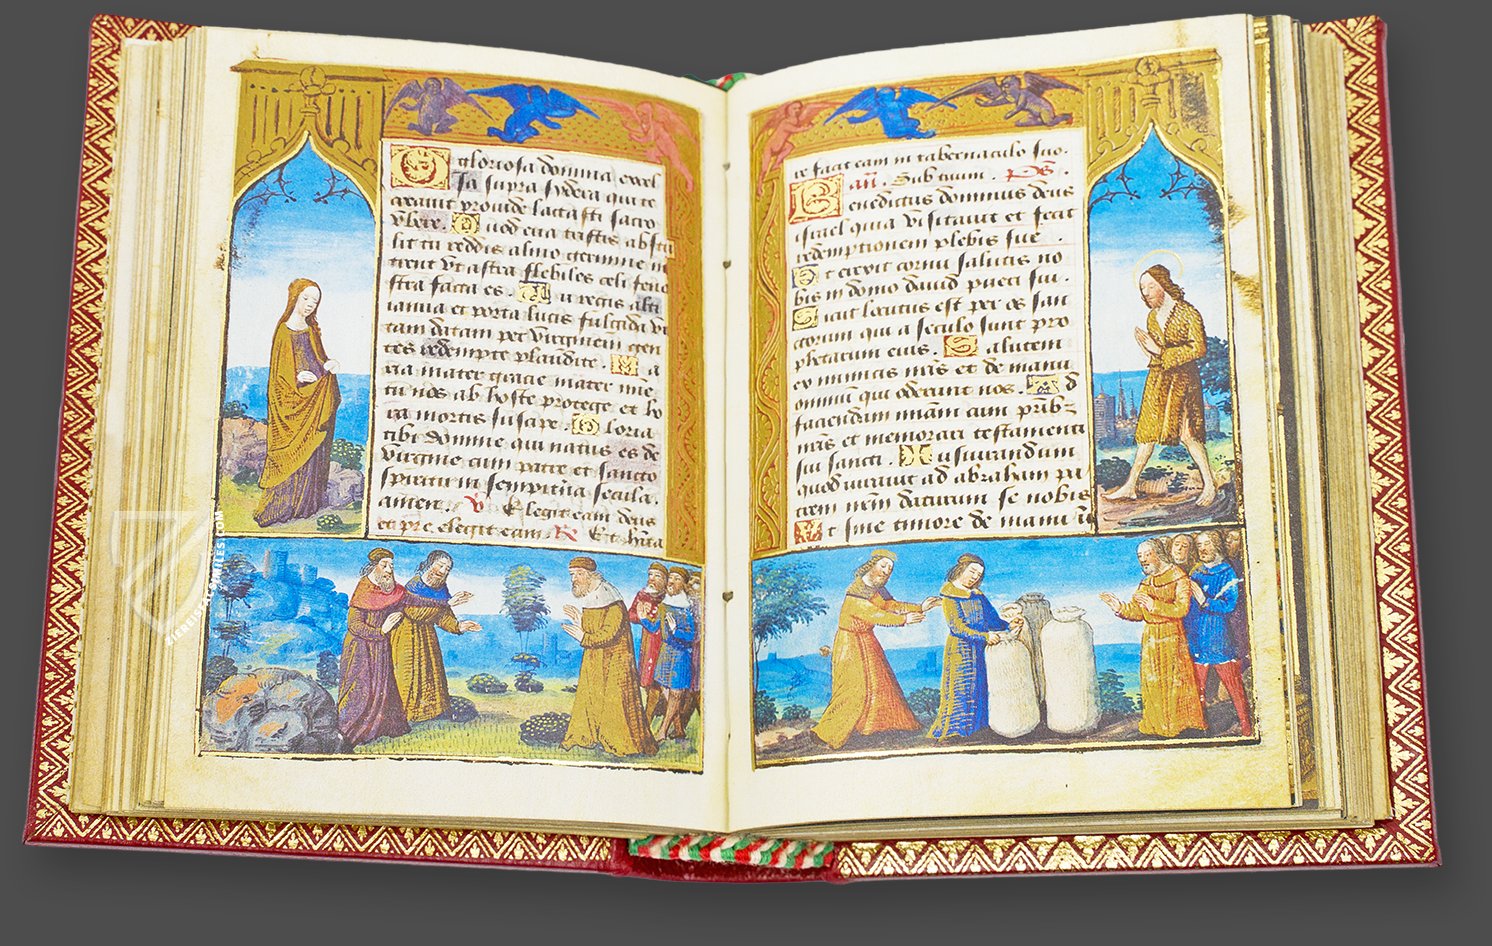 O gloriosa domina excel
sa supra sydera qui te
creauit prouide lactasti sacro
vbere. Quod eua tristis abstu
lit tu reddis almo germine in
trent vt astra flebiles celi fene
stra facta es. Tu regis alti
ianua et porta lucis fulgida vi
tam datam per virginem gen
tes redempte plaudite. Ma
ria mater gracie mater mie
tu nos ab hoste protege et ho
ra mortis suscipe. Gloria
tibi domine qui natus es de
virgine cum patre et sancto
spiritu in sempitna secula.
amen. V Elegit eam deus
et pre elegit eam. R Et hita
re facit eam in tabernaculo suo.
an. Sub tuum. Ps.
Benedictus dominus deus
israel quia visitauit et fecit
redemptionem plebis sue.
Et erexit cornu salutis no
bis in domo dauid pueri sui.
Sicut locutus est per os san
ctorum qui a seculo sunt pro
phetarum eius. Salutem
ex inimicis nris et de manu
omnium qui oderunt nos. Ad
faciendam miam cum prib
nris et memorari testamenti
sui sancti. Iusiurandum
quod iurauit ad abraham pa
trem nrm daturum se nobis
Vt sine timore de manu